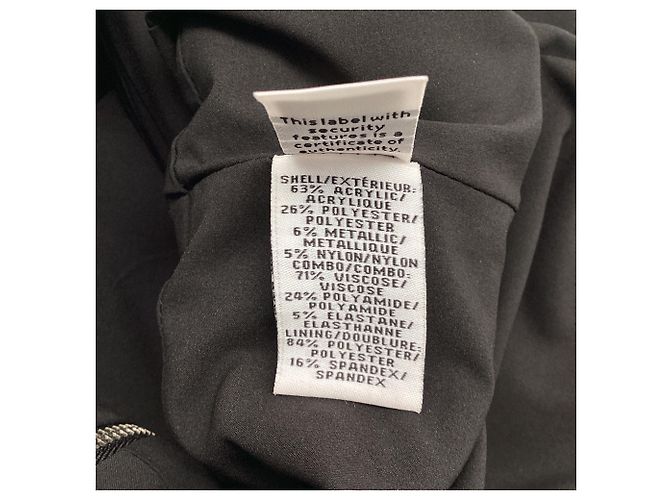 This label with
security
features is a
certificate of
authenticity.
SHELL/EXTÉRIEUR:
63% ACRYLIC/
ACRYLIQUE
26% POLYESTER/
POLYESTER
6% METALLIC/
METALLIQUE
5% NYLON/NYLON
COMBO/COMBO:
71% VISCOSE/
VISCOSE
24% POLYAMIDE/
POLYAMIDE
5% ELASTANE/
ELASTHANNE
LINING/DOUBLURE:
84% POLYESTER/
POLYESTER
16% SPANDEX/
SPANDEX